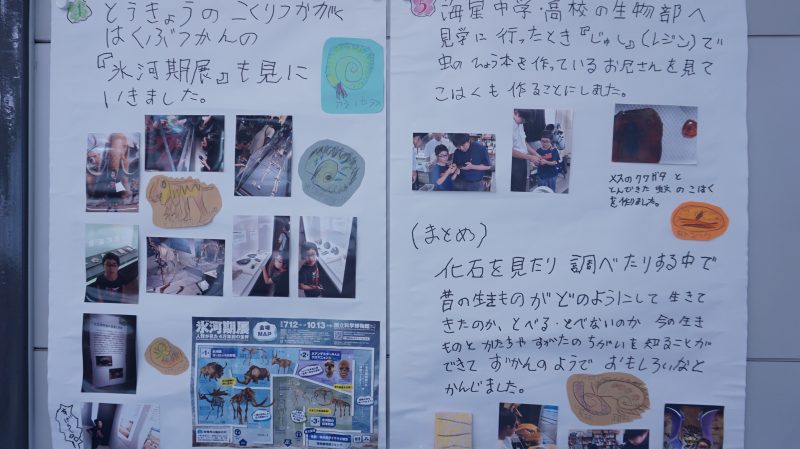 4
とうきょうの こくりつかがく
はくぶつかんの
『氷河期展』も見に
いきました。
氷河期展
会場
MAP
7.12
10.13
国立科学博物館
5
海星中学・高校の生物部へ
見学に行ったとき『じゅし』(レジン)で
虫のひょう本を作っているお兄さんを見て
こはくも作ることにしました。
メスのクワガタと
とんできた 蚊の こはく
を作りました。
(まとめ)
化石を見たり 調べたりする中で
昔の生きものがどのようにして 生きて
きたのか、とべる・とべないのか 今の生き
ものと かたちや すがたの ちがいを 知ることが
できて ずかんのようで おもしろいなと
かんじました。